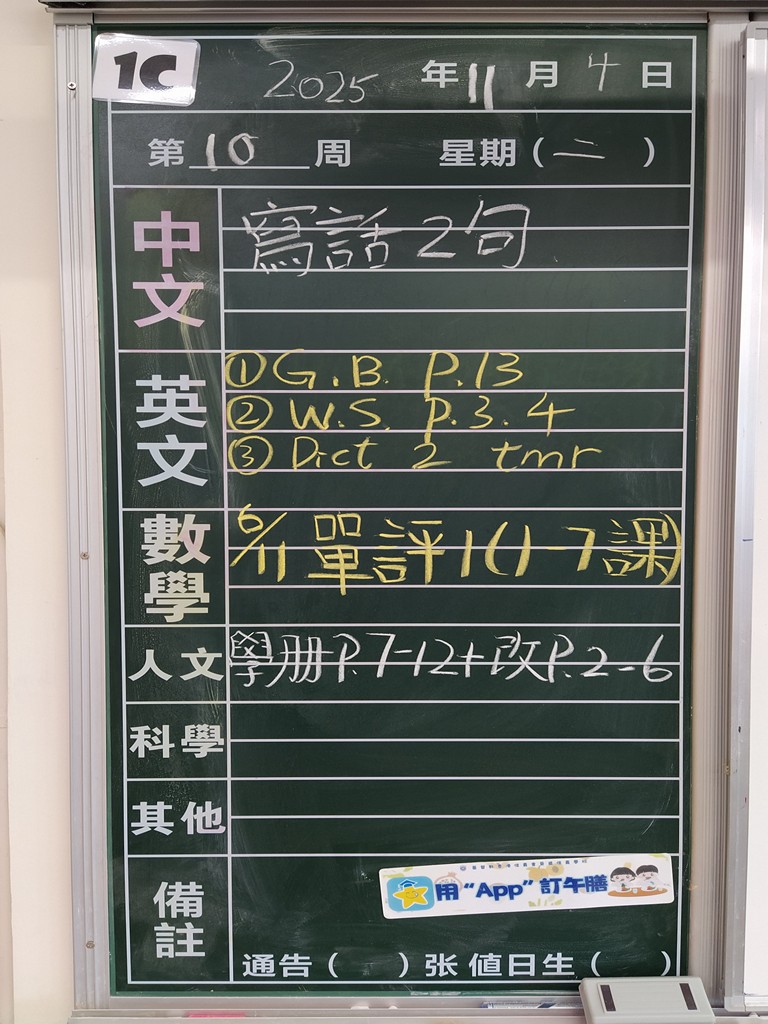 1C
2025 年 11 月 4 日
第 10 周 星期 ( 二 )
中文
寫話 2句
英文
① G.B. P.13
② W.S. P.3.4
③ Dict 2 tmr
數學
6/11 單評1(1-7課)
人文
學册P.7-12+改P.2-6
科學
其他
備註
用 “App” 訂午膳
通告 ( ) 张 值日生 ( )